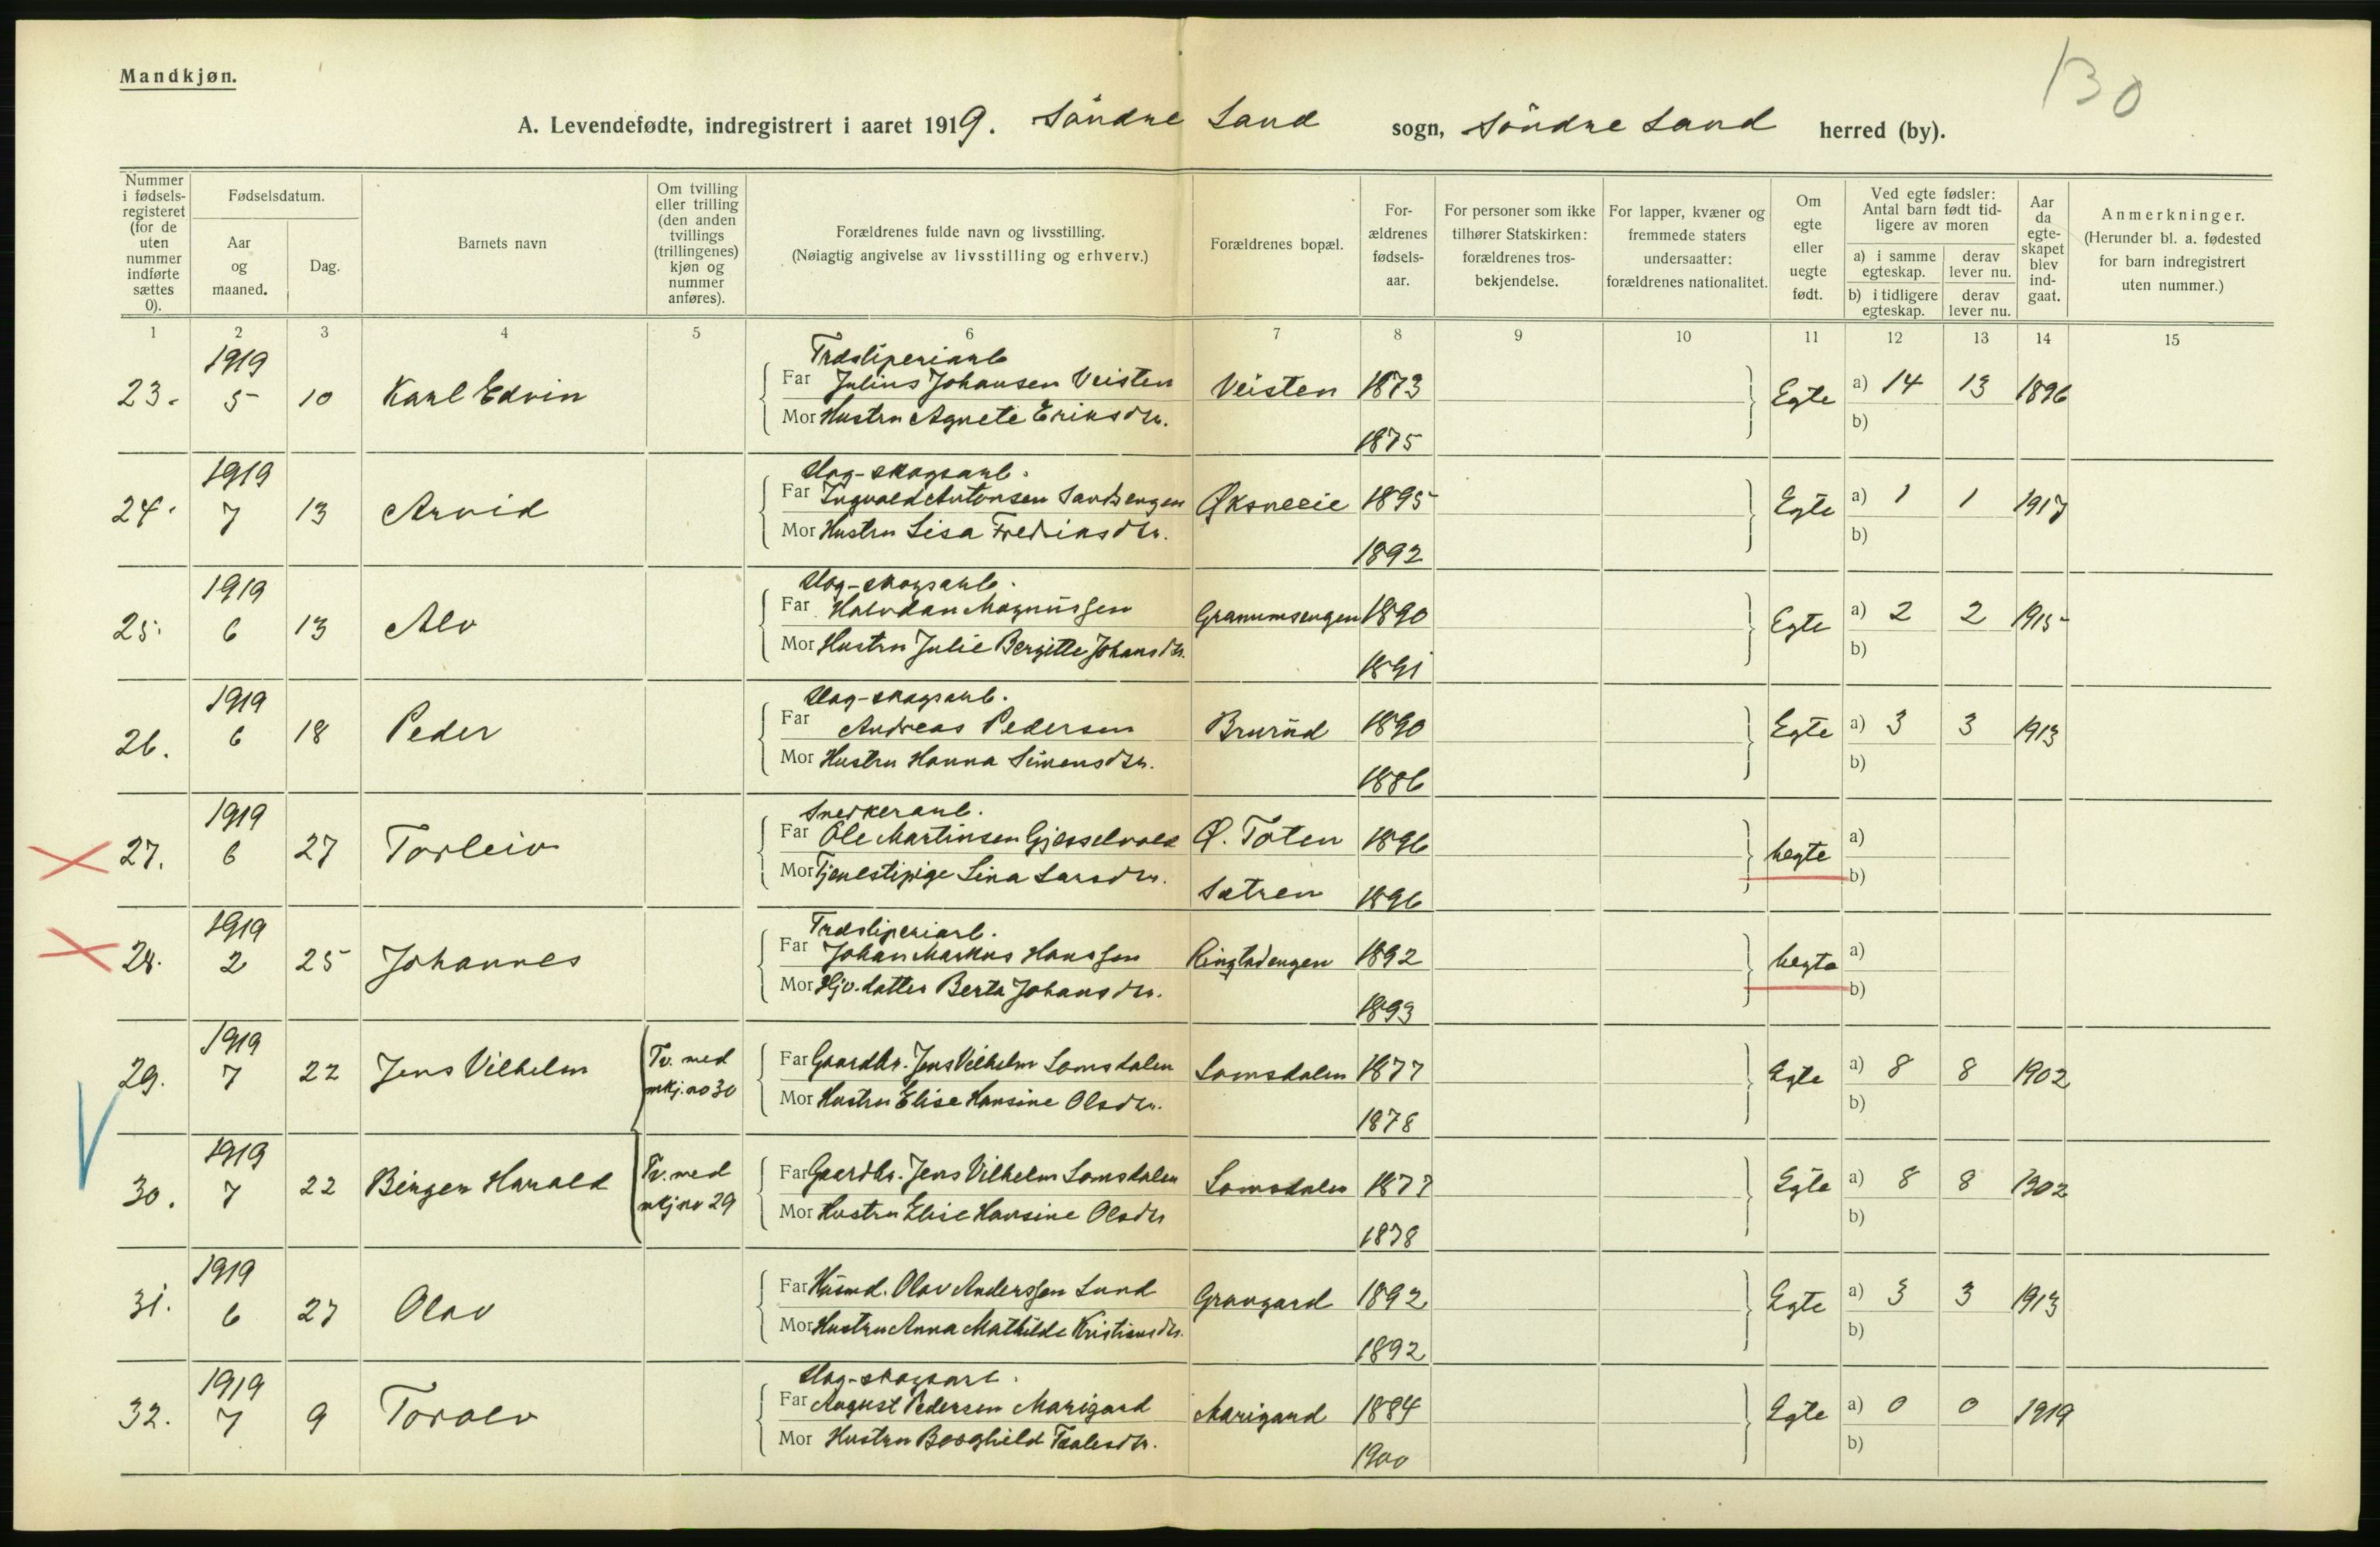 130
Mandkjøn.
A. Levendefødte, indregistrert i aaret 1919. Söndre Land sogn, Söndre Land herred (by).
Nummer i fødselsregisteret (for de uten nummer indførte sættes 0).
Fødselsdatum.
Aar og maaned.
Dag.
Barnets navn
Om tvilling eller trilling (den anden tvillings (trillingenes) kjøn og nummer anføres).
Forældrenes fulde navn og livsstilling.
(Nøiagtig angivelse av livsstilling og erhverv.)
Forældrenes bopæl.
For-ældrenes fødsels-aar.
For personer som ikke tilhører Statskirken: forældrenes tros-bekjendelse.
For lapper, kvæner og fremmede staters undersaatter: forældrenes nationalitet.
Om egte eller uegte født.
Ved egte fødsler: Antal barn født tid-ligere av moren
a) i samme egteskap. derav lever nu.
b) i tidligere egteskap. derav lever nu.
Aar da egte-skapet blev ind-gaat.
Anmerkninger.
(Herunder bl. a. fødested for barn indregistrert uten nummer.)
1 2 3 4 5 6 7 8 9 10 11 12 13 14 15
1919 Træsliperiarb
23. 5 10 Karl Edvin Far Julius Johansen Veisten Veisten 1873 Egte a) 14 13 1896
Mor Hustru Agnete Eriksdtr. 1875 b)
1919 Dag-skogsarb.
24. 7 13 Arvid Far Ingvald Antonsen Sandsengen Øksneeie 1895 Egte a) 1 1 1917
Mor Hustru Lisa Fredriksdtr. 1892 b)
1919 Dag-skogsarb.
25. 6 13 Alv Far Halvdan Magnussen Granumsengen 1890 Egte a) 2 2 1915
Mor Hustru Julie Bergitte Johansdtr. 1891 b)
1919 Dag-skogsarb.
26. 6 18 Peder Far Andreas Pedersen Brurud 1890 Egte a) 3 3 1913
Mor Hustru Hanna Simensdtr. 1886 b)
1919 Snedkerarb.
27. 6 27 Torleiv Far Ole Martinsen Gjesselvold Ø. Toten 1896 Uegte a)
Mor Tjenestepige Lina Larsdtr. Sætren 1896 b)
1919 Træsliperiarb.
28. 2 25 Johannes Far Johan Markus Hanssen 1892 Uegte a)
Mor Hjv. datter Berta Johansdtr. 1893 b)
1919
29. 7 22 Jens Vilhelm Tv. med mkj. no 30 Far Gaardbr. Jens Vilhelm Lomsdalen Lomsdalen 1877 Egte a) 8 8 1902
Mor Hustru Elise Hansine Olsdtr. 1878 b)
1919
30. 7 22 Birger Harald Tv. med mkj no 29 Far Gaardbr. Jens Vilhelm Lomsdalen Lomsdalen 1877 Egte a) 8 8 1902
Mor Hustru Elise Hansine Olsdtr 1878 b)
1919
31. 6 27 Olav Far Husmd. Olav Anderssen Lund Grangard 1892 Egte a) 3 3 1913
Mor Hustru Anna Mathilde Kristiansdtr. 1892 b)
1919 Dag-skogsarb.
32. 7 9 Toralv Far August Pedersen Marigard Marigard 1884 Egte a) 0 0 1919
Mor Hustru Borghild 1900 b)